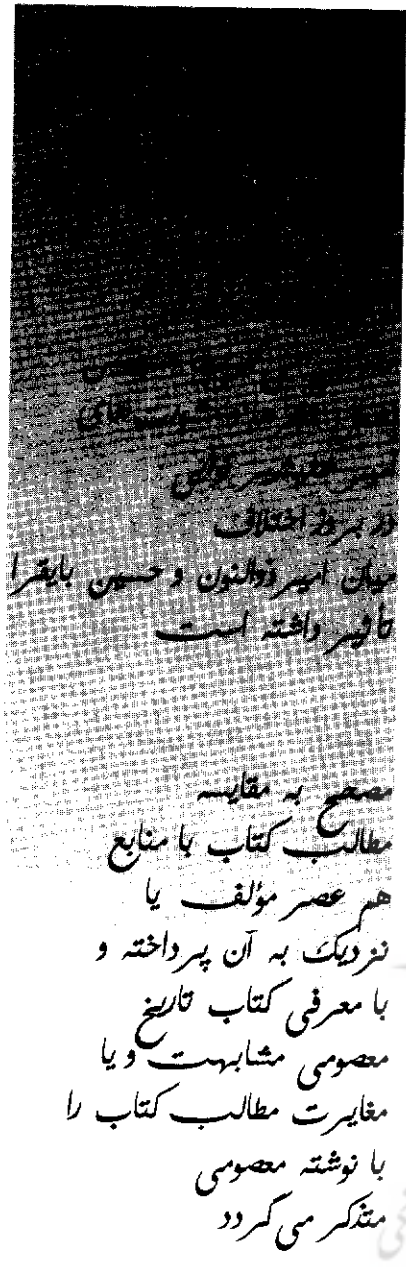 در بروز اختلاف
میان امیر ذوالنون و حسین بایقرا
تأثیر داشته است
مصحح به مقایسه
مطالب کتاب با منابع
هم عصر مؤلف یا
نزدیک به آن پرداخته و
با معرفی کتاب تاریخ
معصومی مشابهت و یا
مغایرت مطالب کتاب را
با نوشته معصومی
متذکر می گردد